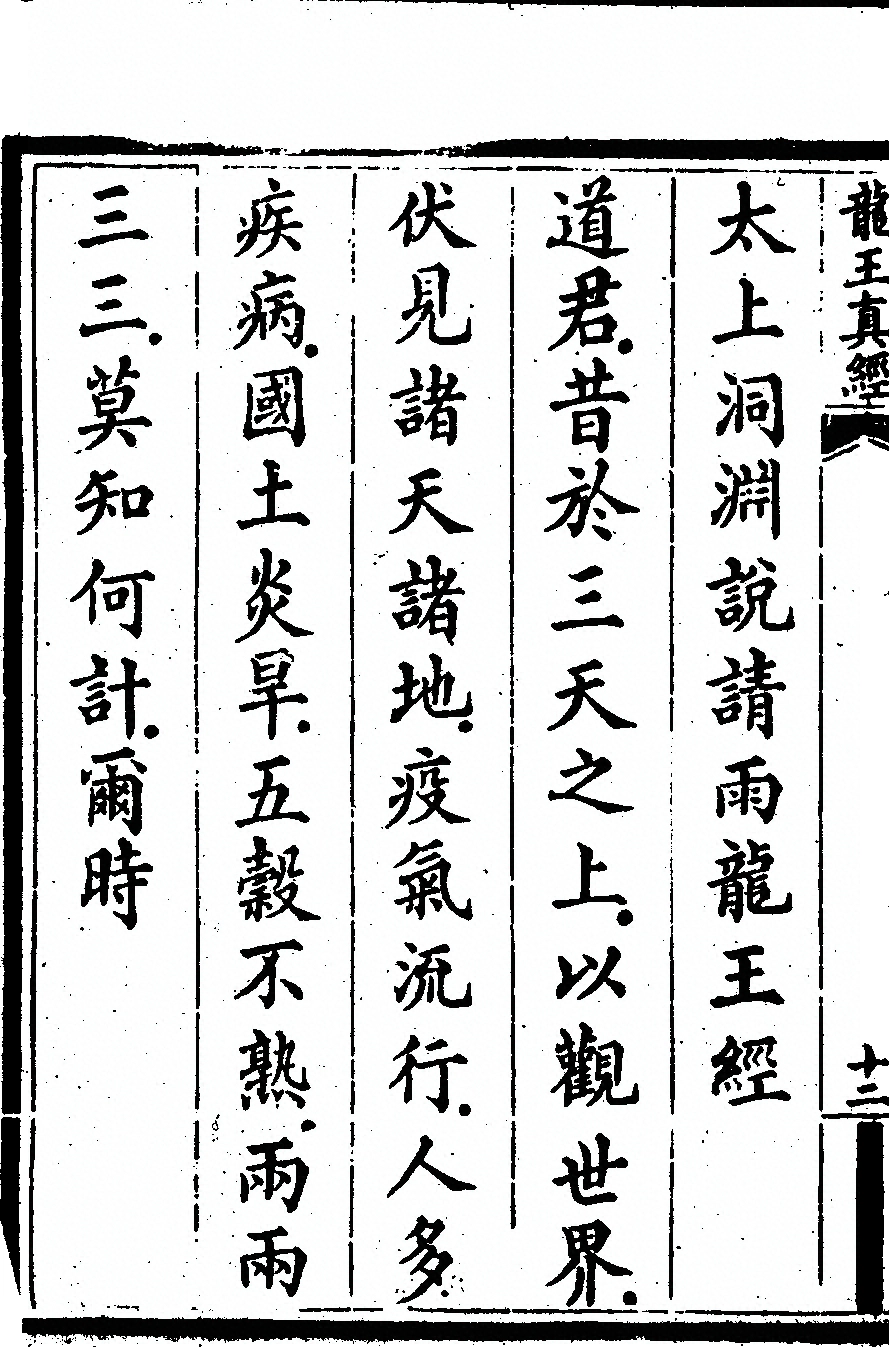 龍王真經
十二
太上洞淵說請雨龍王經
道君.昔於三天之上.以觀世界.
伏見諸天諸地.疫氣流行.人多
疾病.國土炎旱.五穀不熟.兩兩
三三.莫知何計.爾時